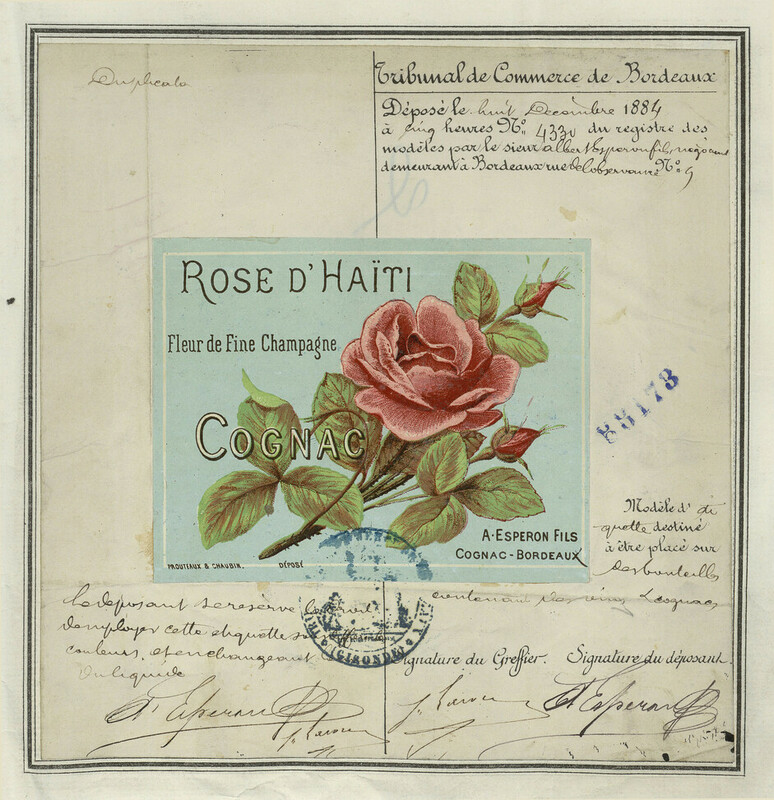 Duplicata
Tribunal de Commerce de Bordeaux
Déposé le huit Décembre 1884
à cinq heures N° 4330 du registre des
modèles par le sieur albert Esperon fils négociant
demeurant à Bordeaux rue de l'observance N° 9
ROSE D'HAÏTI
Fleur de Fine Champagne
COGNAC
88178
A. ESPERON FILS
COGNAC - BORDEAUX
PROUTEAUX & CHAUBIN.
DÉPOSÉ
Modèle d'éti
quette destiné
à être placé sur
des bouteilles
contenant des vins & cognacs
le déposant se réserve le droit
d'employer cette étiquette
couleurs et en changeant
du liquide
(GIRONDE)
Signature du Greffier. Signature du déposant.
A Esperon
A Esperon